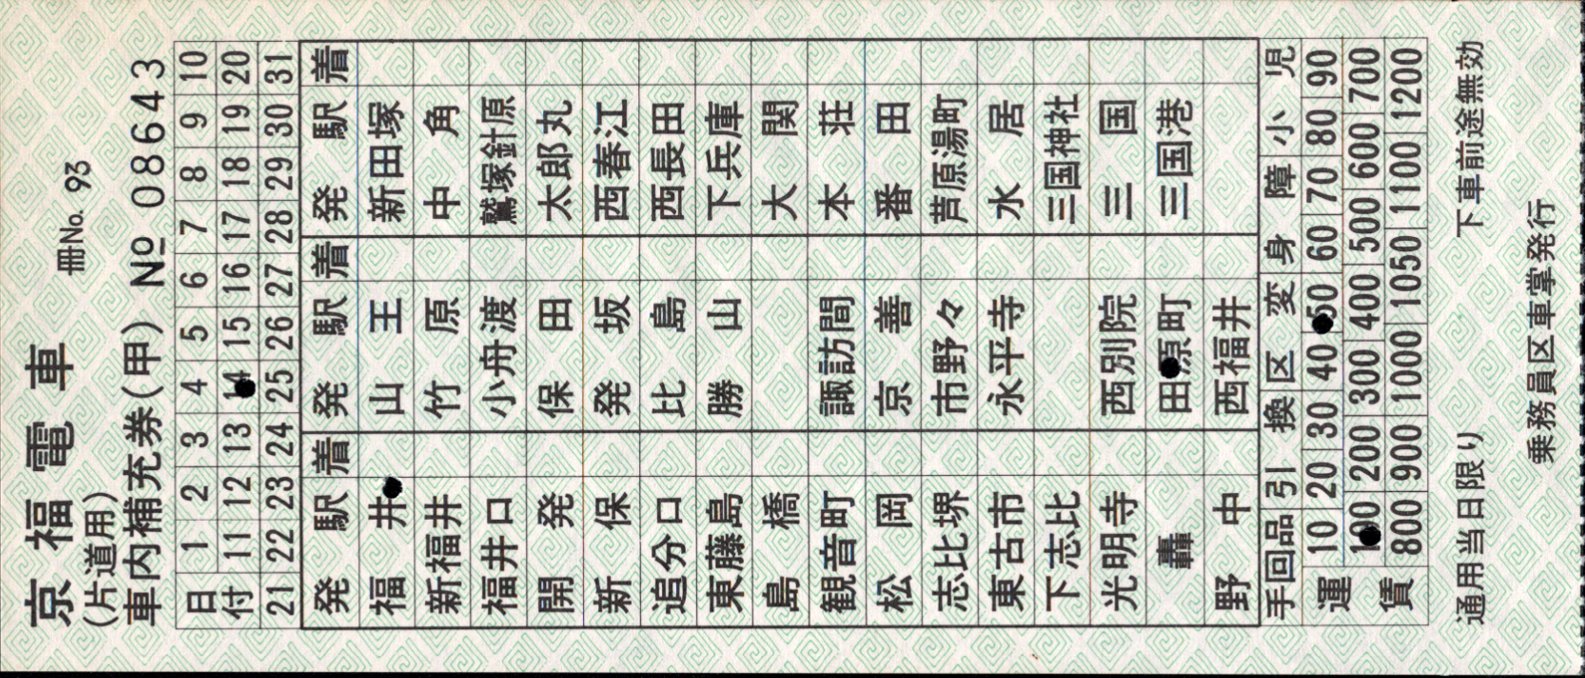 京福電車
(片道用) 冊No. 93
車内補充券(甲) № 08643
日 1 2 3 4 5 6 7 8 9 10
付 11 12 13 14 15 16 17 18 19 20
21 22 23 24 25 26 27 28 29 30 31
発駅 着 発駅 着 発駅 着
福井 山王 新田塚
新福井 竹原 中角
福井口 小舟渡 鷲塚針原
開発 保田 太郎丸
新保 発坂 西春江
追分口 比島 西長田
東藤島 勝山 下兵庫
島橋 大関
観音町 諏訪間 本荘
松岡 京善 番田
志比堺 市野々 芦原湯町
東古市 永平寺 水居
下志比 三国神社
光明寺 西別院 三国
轟 田原町 三国港
野中 西福井
手回品 引換 区変 身障 小児
運 10 20 30 40 50 60 70 80 90
100 200 300 400 500 600 700
賃 800 900 1000 1050 1100 1200
通用当日限り 下車前途無効
乗務員区車掌発行